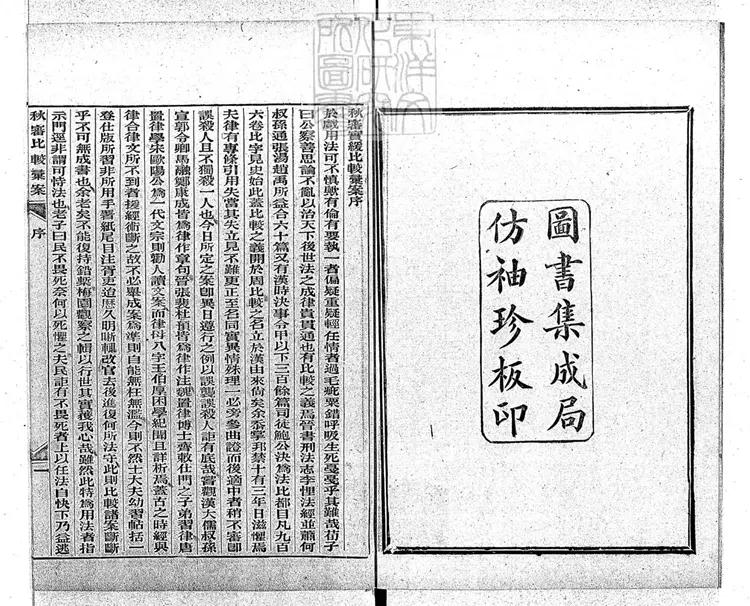 圖書集成局
仿袖珍板印
秋審實緩比較彙案序
於戲用法可不慎歟有倫有要執一者偏疑重疑輕任情者過毛疵粟錯呼吸生死戞戞乎其難哉荀子
曰公察善思論不亂以治天下後世法之成律貴貫通也有比較之義焉晉書刑法志李悝法經並蕭何
叔孫通張湯趙禹所益合六十篇又有漢時決事令甲以下三百餘篇司徒鮑公決為法比都目凡九百
六卷比字見史始此蓋比較之義開於周比較之名立於漢由來尚矣余忝掌邦禁十有三年日滋懼焉
夫律有專條引用失當其失立見不難更正至名同實異情殊理一必旁參曲證而後適中者稍不審卽
誤殺人且不獨殺一人也今日所定之案卽異日遵行之例以誤襲誤殺人詎有底哉嘗觀漢大儒叔孫
宣郭令卿馬融鄭康成皆為律作章句晉張斐杜預皆為律作注魏置律博士齊敕仕門之子弟習律唐
置律學宋歐陽公為一代文宗則勸人讀文案而律母八字王伯厚困學紀聞且詳析焉蓋古之時經與
律合律文所不到者搓經術斷之故不必舉成案為準則自能無枉無濫今則不然士大夫幼習帖括一
登仕版所習非所用手署紙尾目注胥吏迨歷久明晰輒改官去後進復何所法守此則比較諸案斷斷
乎不可無成書也余老矣不能復持錯栗梅園觀察之輯以行世其實獲我心哉雖然此特為用法者指
示門逕非謂可恃法也老子曰民不畏死奈何以死懼之夫民詎有不畏死者上以任法自快下乃益逃
秋審比較彙案 序 一